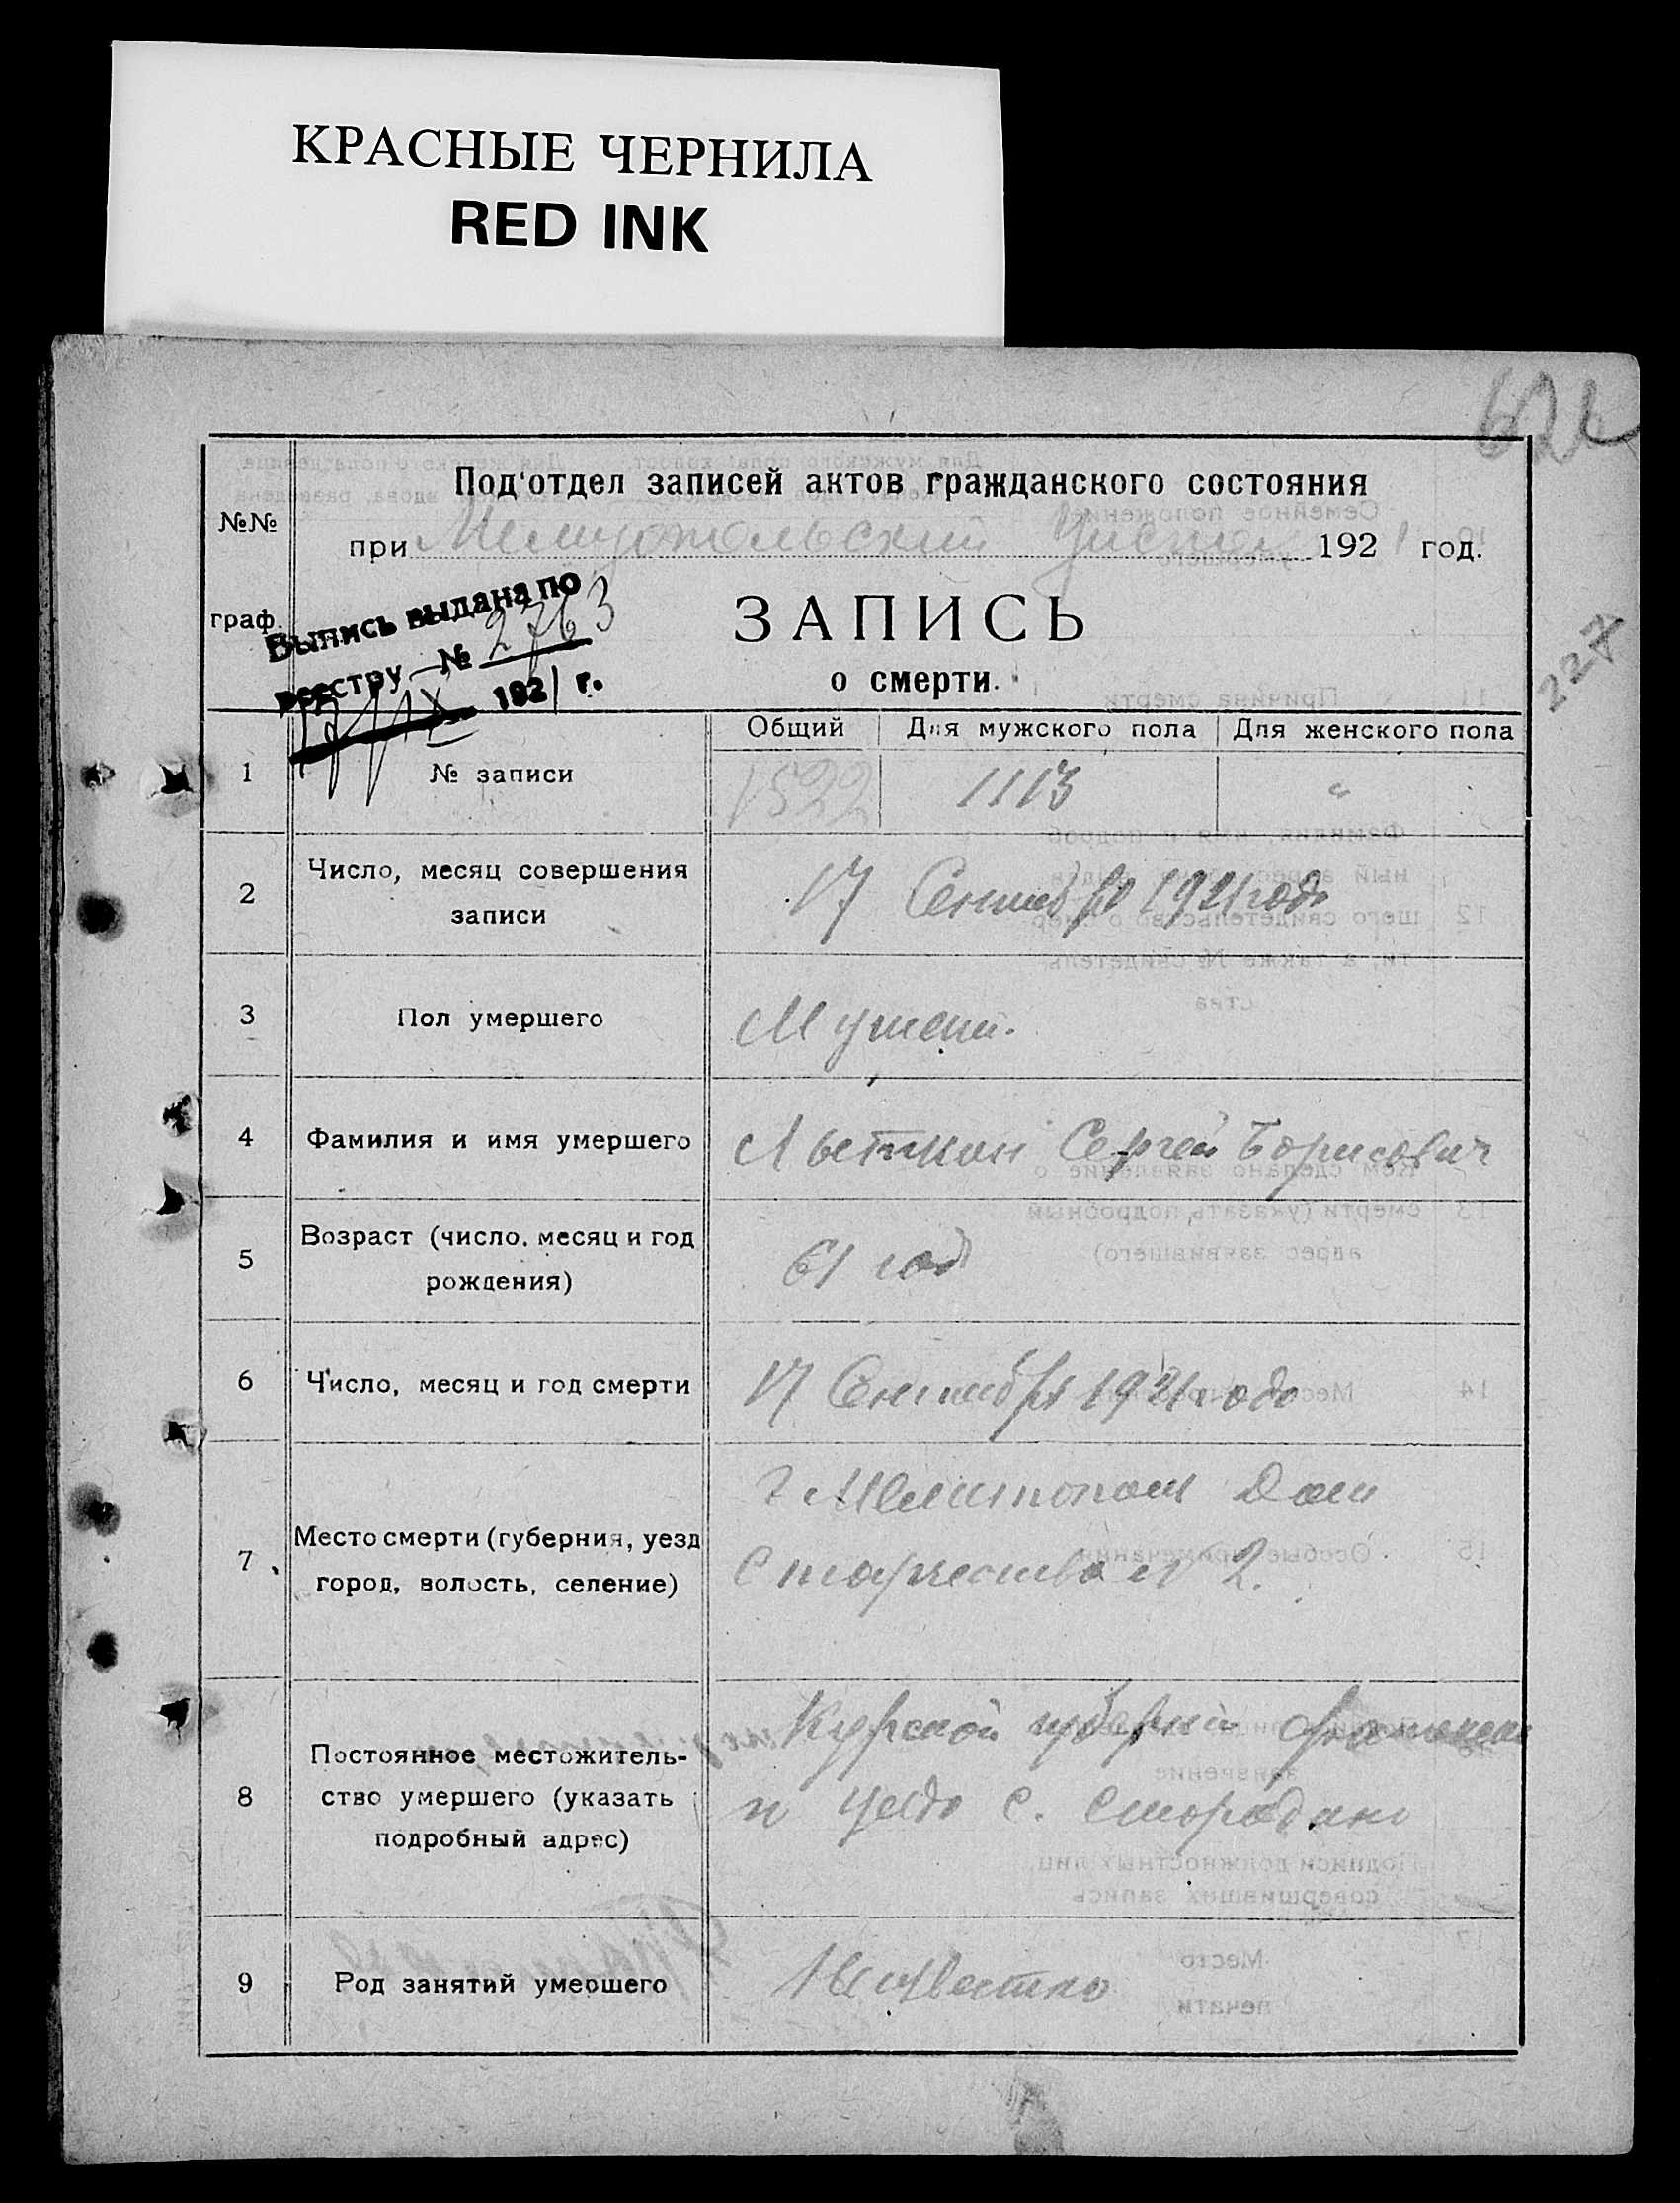 КРАСНЫЕ ЧЕРНИЛА
RED INK
Под'отдел записей актов гражданского состояния
№№
при 1921 год.
граф.
Выпись выдана по
реестру № 2763
1921 г.
ЗАПИСЬ
о смерти.
227
Общий Для мужского пола Для женского пола
1 № записи 1522 1113 "
2 Число, месяц совершения записи 17 Сентября 1921 года
3 Пол умершего Мужск.
4 Фамилия и имя умершего Сергей Борисович
5 Возраст (число, месяц и год рождения) 61 год
6 Число, месяц и год смерти 17 Сентября 1921 года
7 Место смерти (губерния, уезд город, волость, селение) г Мелитополь Дом
Старчества № 2.
8 Постоянное местожительство умершего (указать подробный адрес) Курской губернии
уезда с.
9 Род занятий умершего Неизвестно